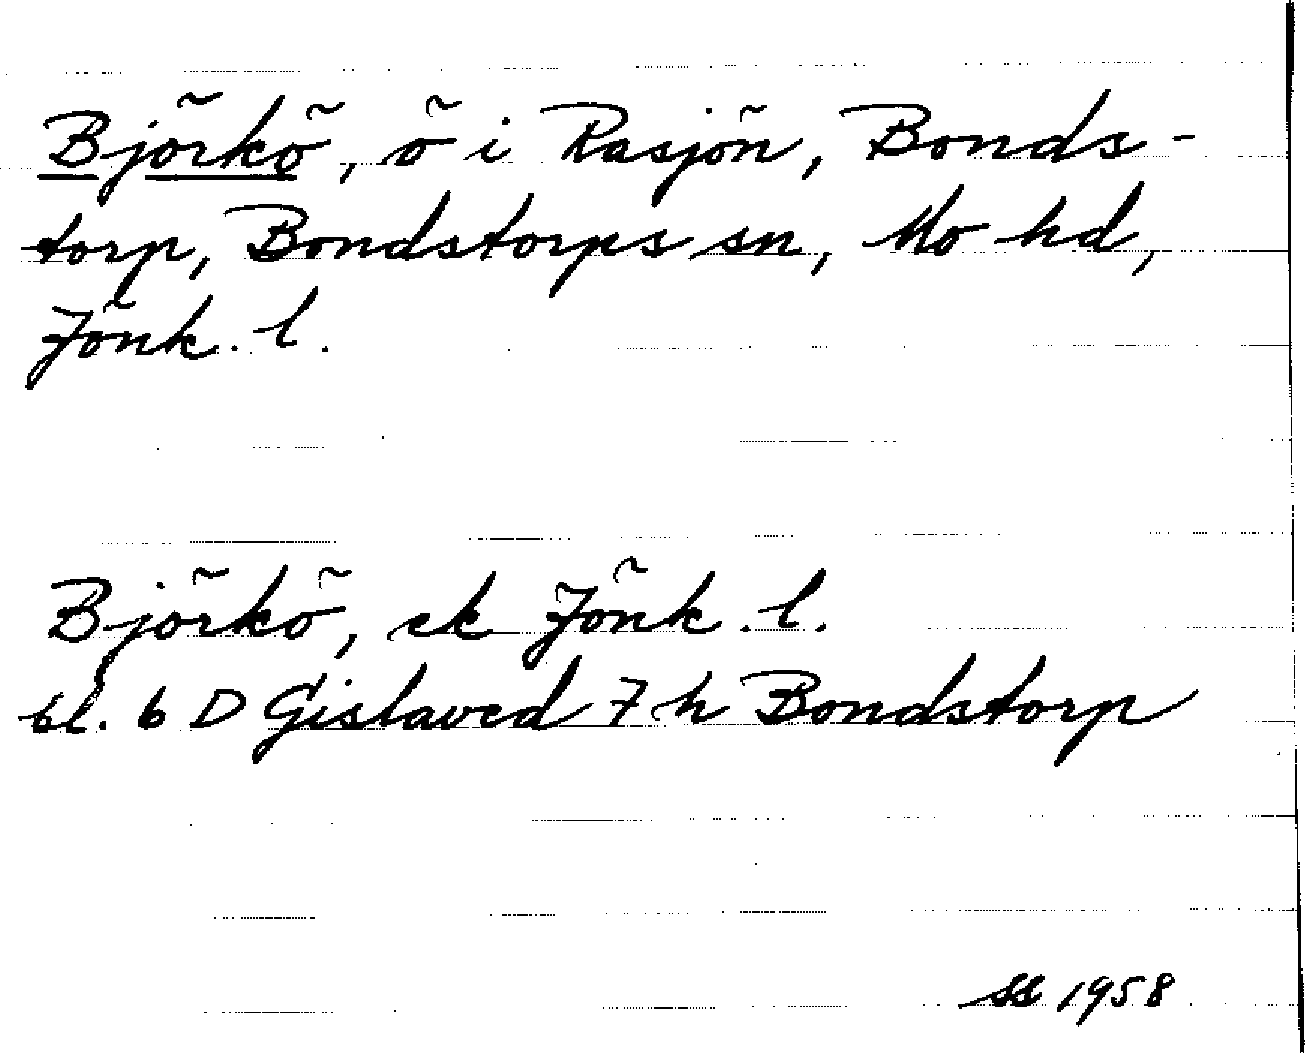 Björkö, ö i Rasjön, Bonds-
torp, Bondstorps sn, Mo hd,
Jönk. l.
Björkö, ek Jönk. l.
bl. 6 D Gislaved 7 h Bondstorp
SS 1958